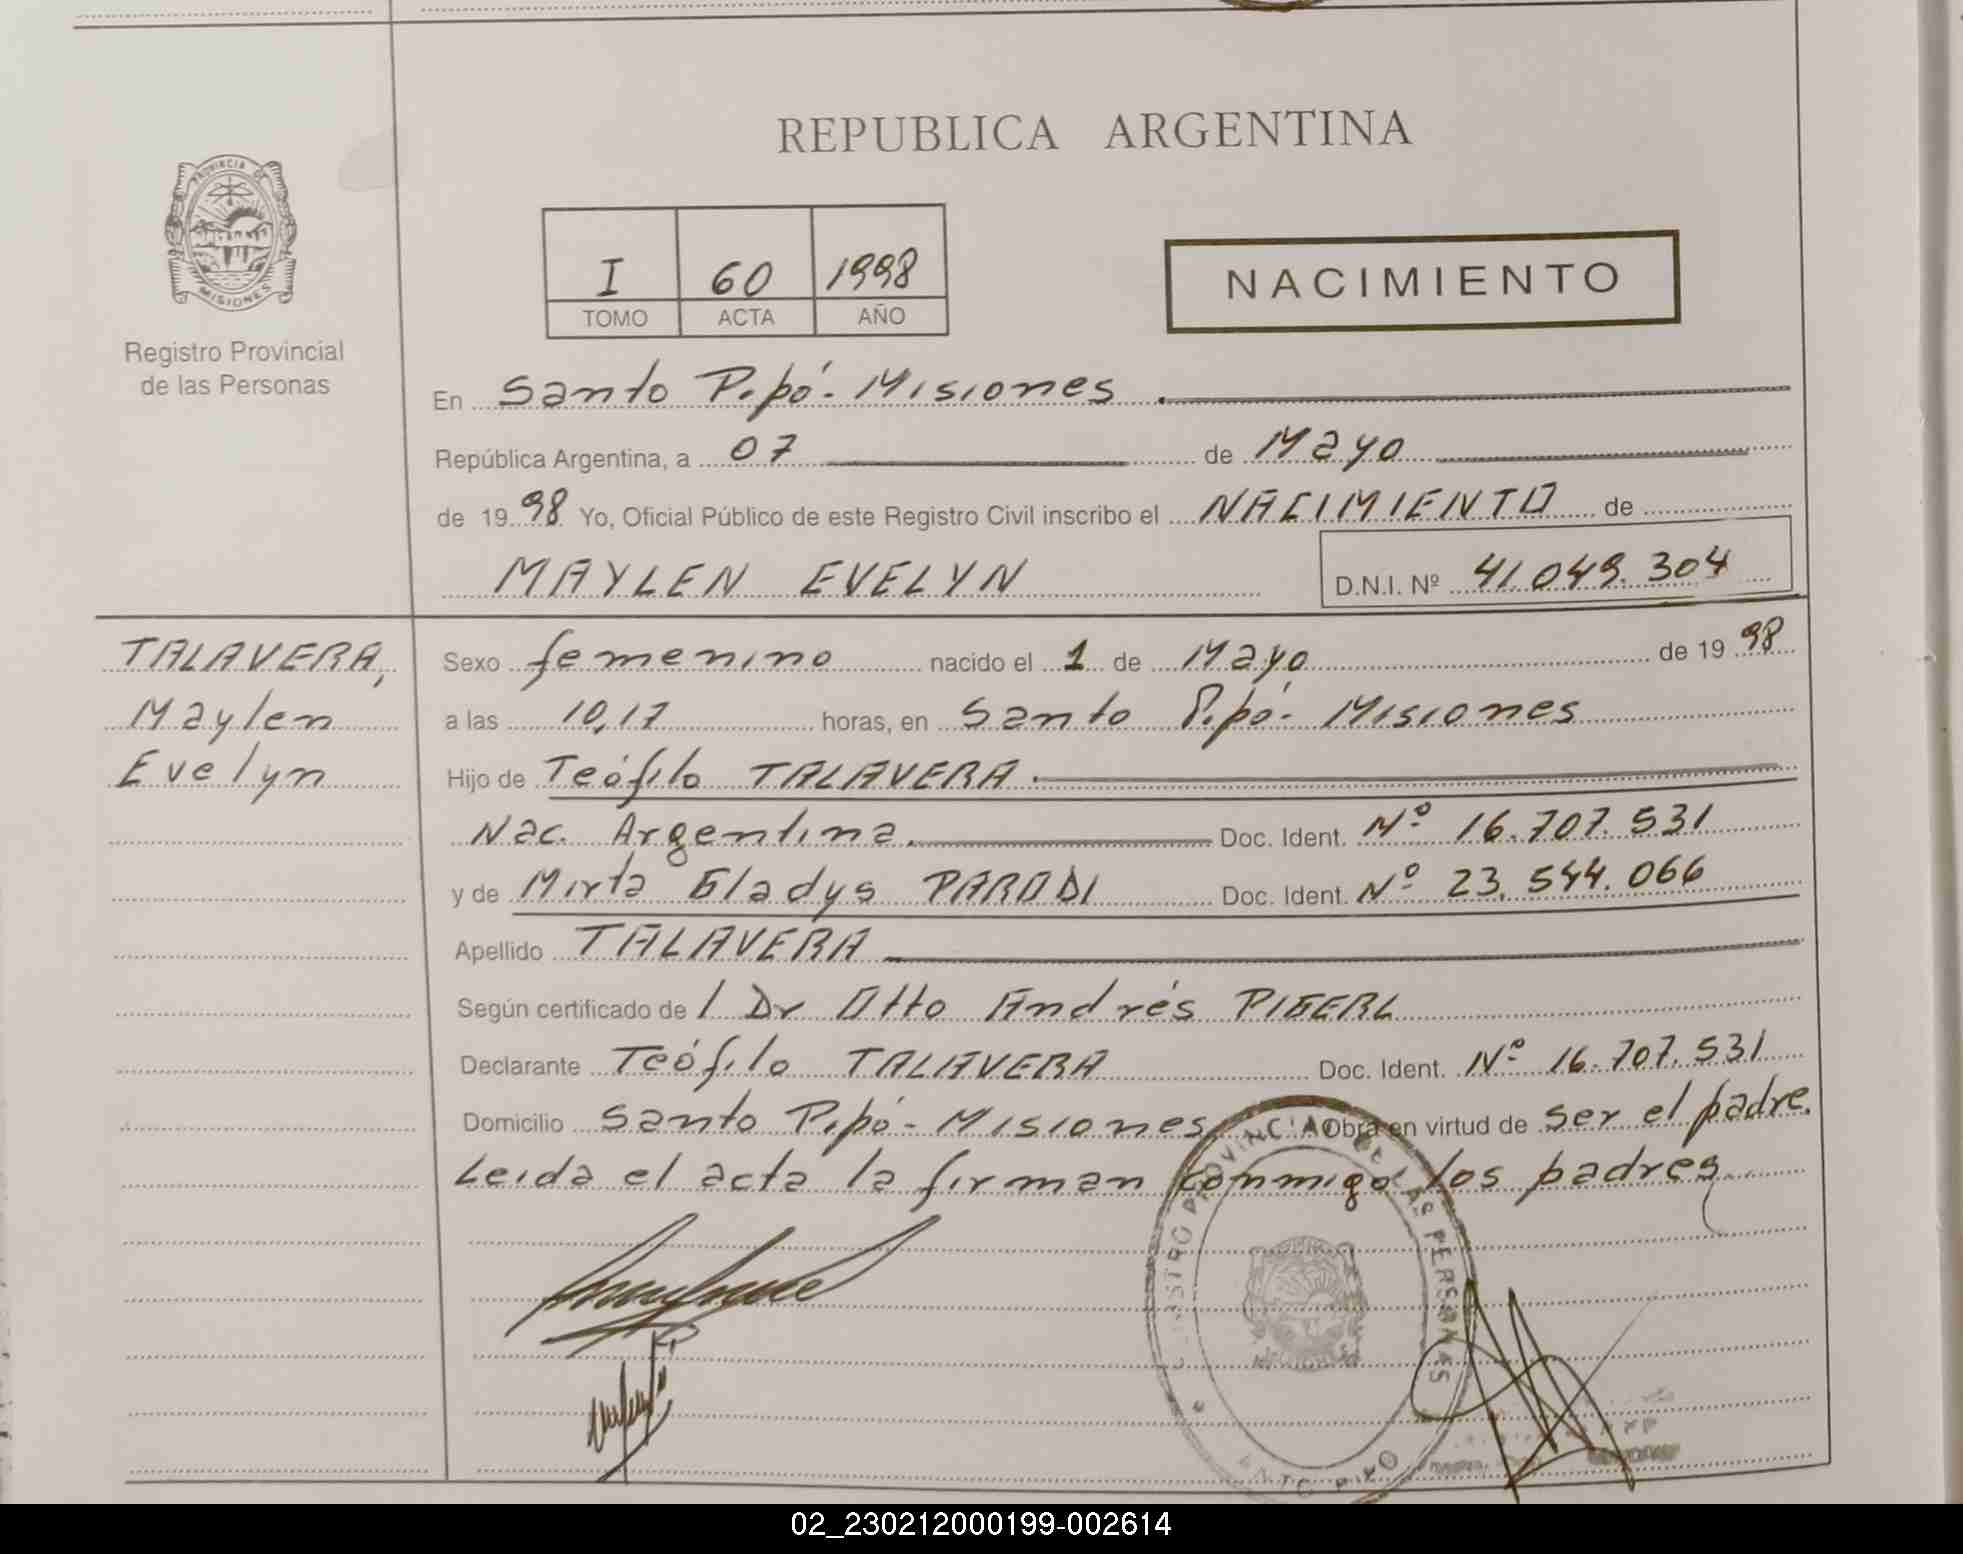 REPUBLICA ARGENTINA
PROVINCIA DE
MISIONES
Registro Provincial
de las Personas
I 60 1998
TOMO ACTA AÑO
NACIMIENTO
En Santo Pipó - Misiones
República Argentina, a 07 de Mayo
de 1998 Yo, Oficial Público de este Registro Civil inscribo el NACIMIENTO de
MAYLEN EVELYN D.N.I. Nº 41.049.304
TALAVERA,
Maylen
Evelyn
Sexo femenino nacido el 1 de Mayo de 1998
a las 10,17 horas, en Santo Pipó - Misiones
Hijo de Teófilo TALAVERA.
Nac. Argentina. Doc. Ident. Nº 16.707.531
y de Mirta Gladys PARODI Doc. Ident. Nº 23.544.066
Apellido TALAVERA
Según certificado del Dr Otto Andrés
Declarante Teófilo TALAVERA Doc. Ident. Nº 16.707.531
Domicilio Santo Pipó - Misiones Obra en virtud de ser el padre.
Leida el acta la firman conmigo los padres
REGISTRO PROVINCIAL DE LAS PERSONAS
SANTO PIPO
MISIONES
02_230212000199-002614